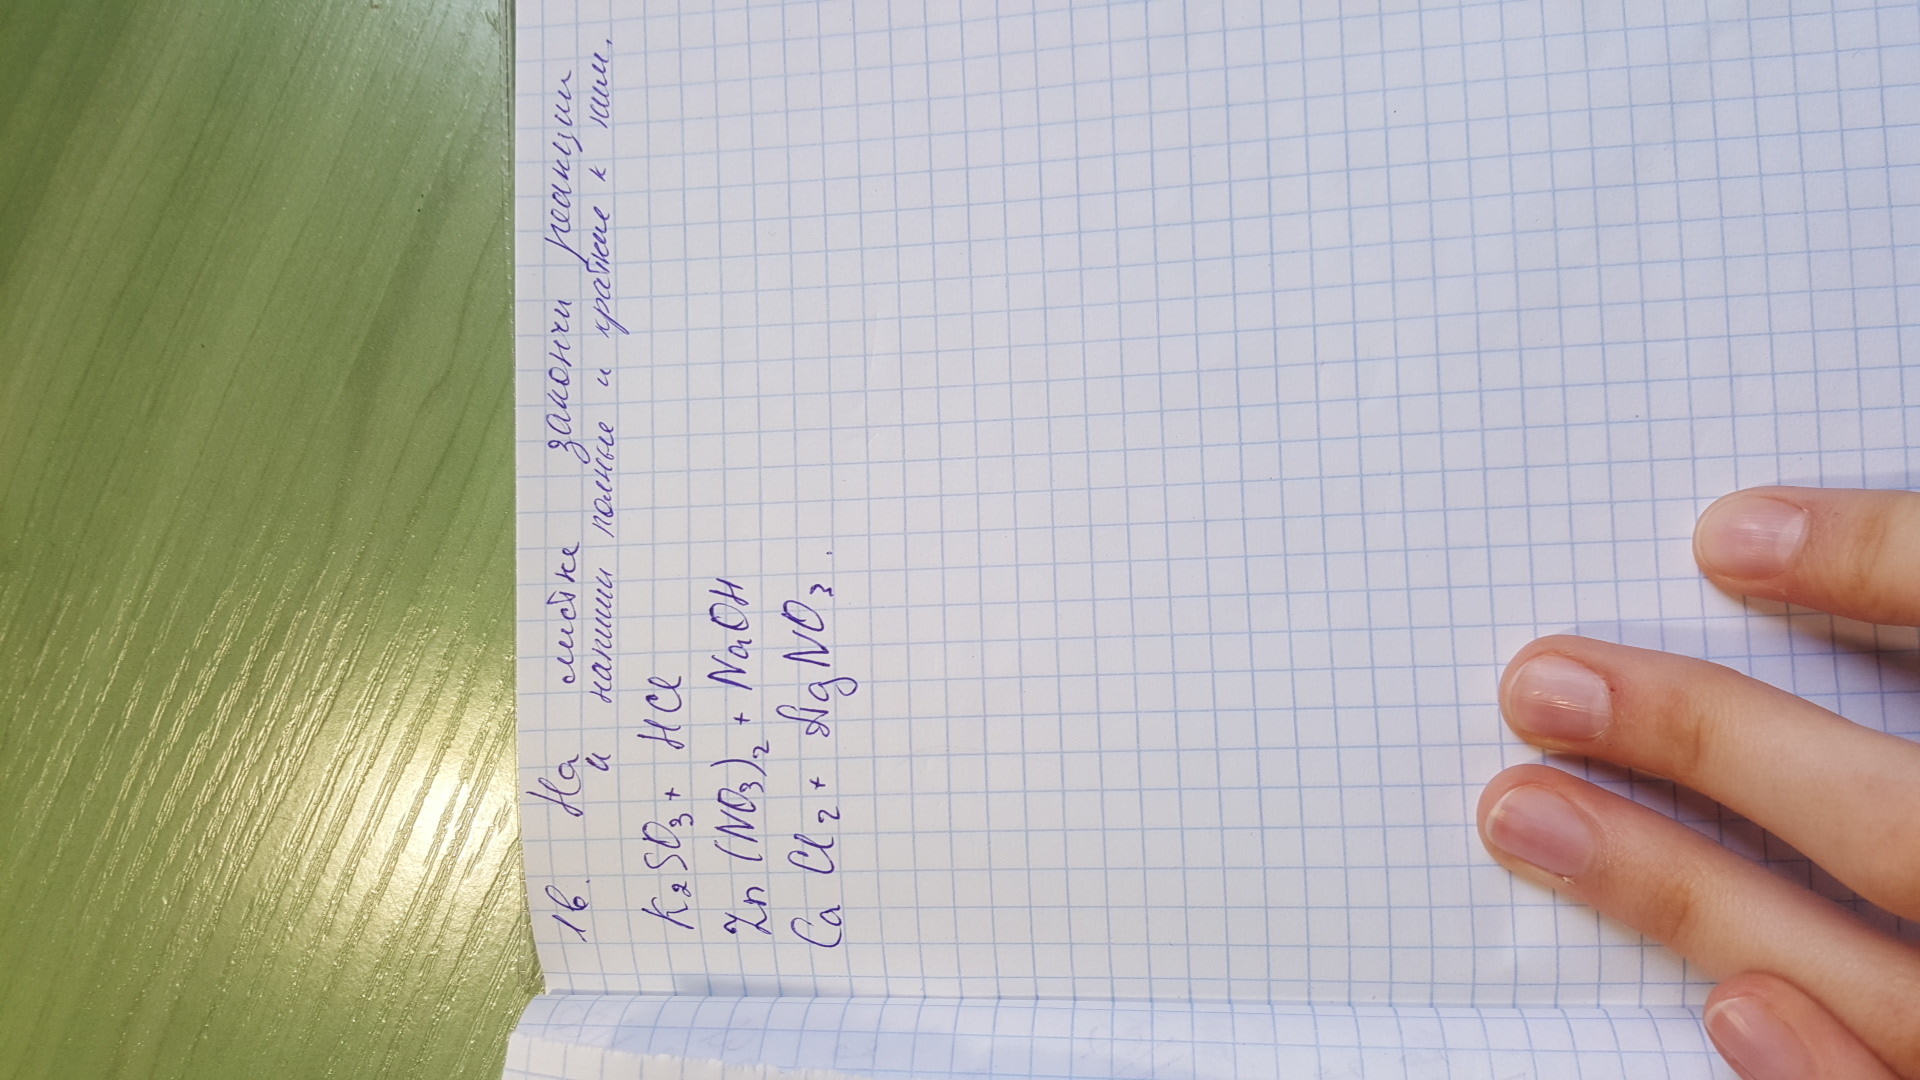 1в. На листке закончи реакции
и напиши полные и краткие к ним.
K₂SO₃ + HCl
Zn(NO₃)₂ + NaOH
CaCl₂ + AgNO₃.